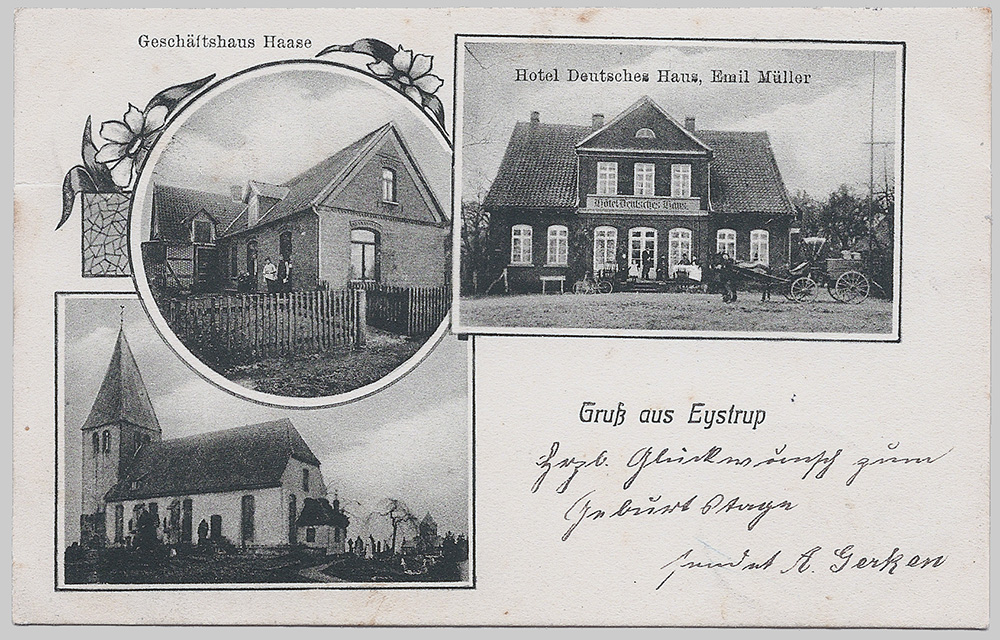 Geschäftshaus Haase
Hotel Deutsches Haus, Emil Müller
Hôtel Deutsches Haus.
Gruß aus Eystrup
Hrzl. Glückwünsch zum
Geburtstage
sendet A. Gerken